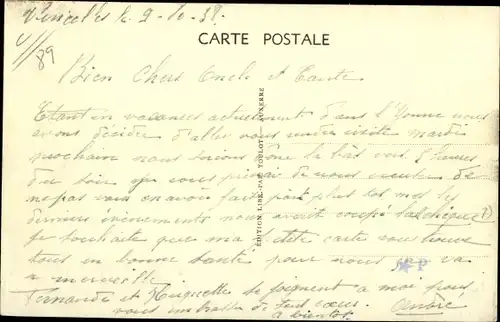 Vincelles le 9-10-38
V/89
CARTE POSTALE
Bien Chers Oncle et Tante
Etant en vacances actuellement dans l'Yonne nous
avons décidés d'aller vous rendre visite mardi
prochain nous serions donc là bas vers 5 heures
du soir vous de nous
pas vous en avoir fait part plus tôt mes les
derniers évènements nous avait coupé
je souhaite que ma petite carte vous trouve
tous en bonne santé pour nous va
a merveille.
Fernande et Huguette se joignent a moi pour
vous embrasser de tout cœur.
a bientôt André
ÉDITION LIBR.-PAP. TOULOT - AUXERRE